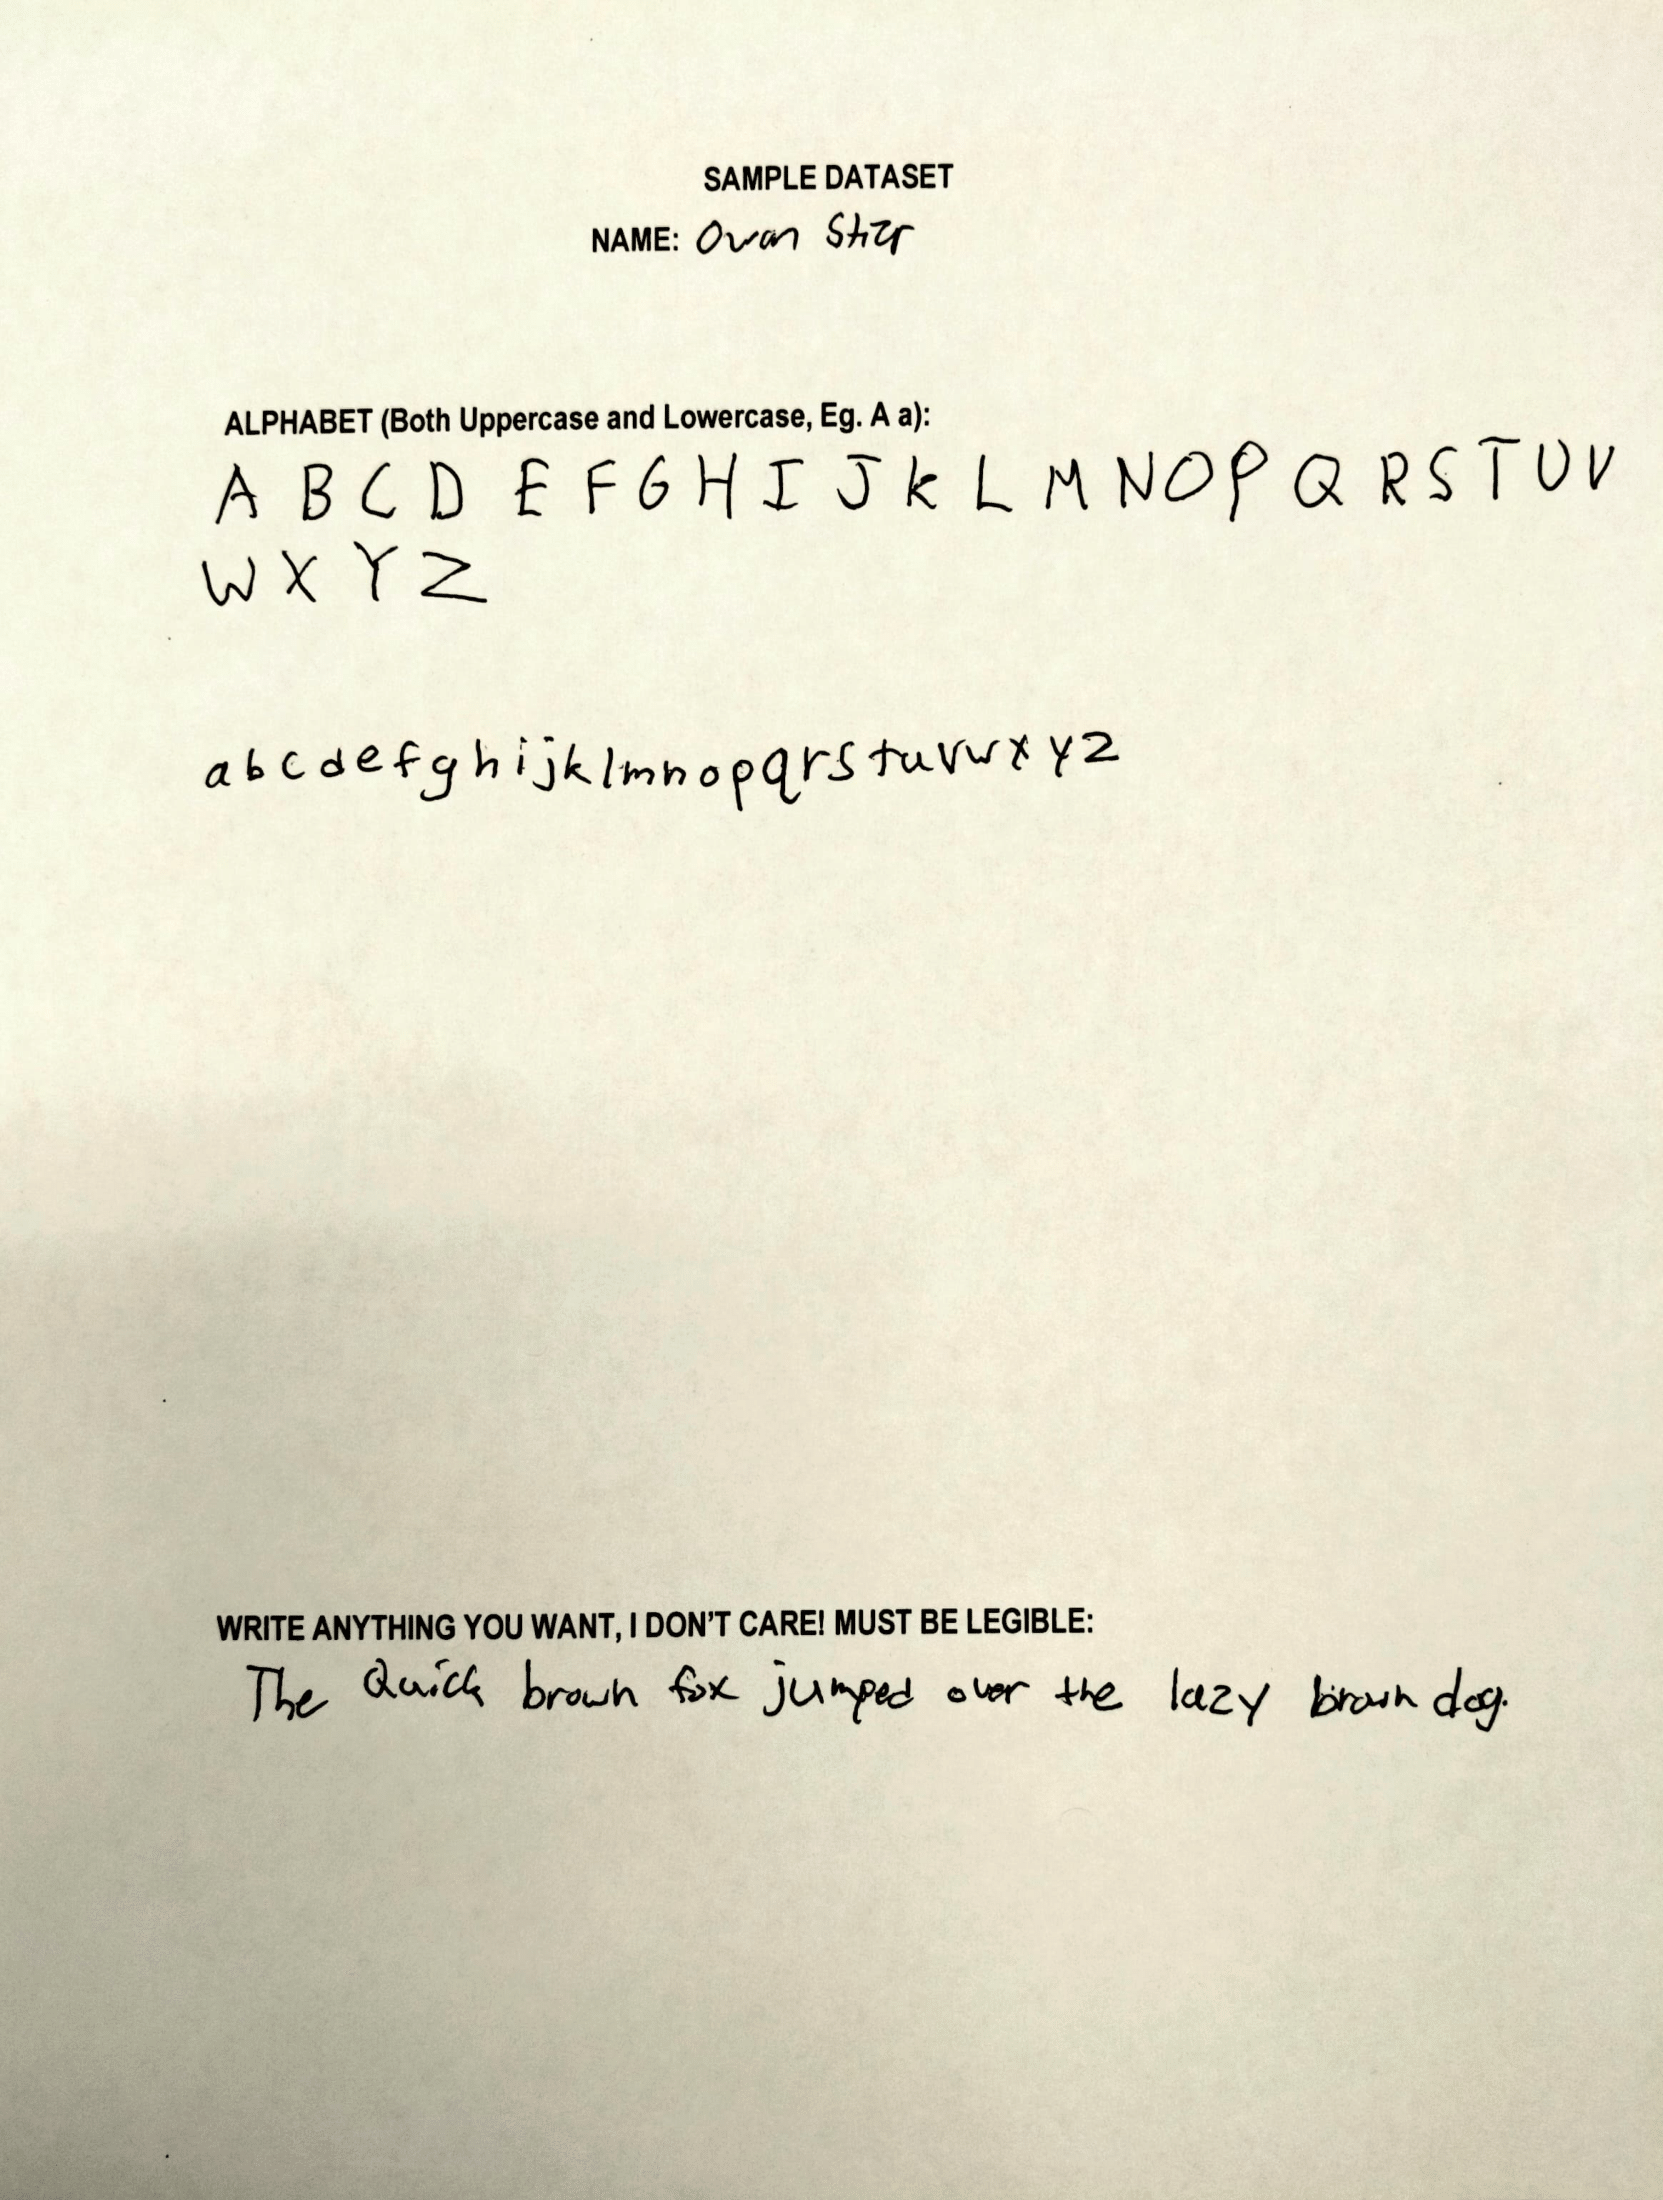 SAMPLE DATASET
NAME: Owen Stier
ALPHABET (Both Uppercase and Lowercase, Eg. A a):
A B C D E F G H I J K L M N O P Q R S T U V
W X Y Z
a b c d e f g h i j k l m n o p q r s t u v w x y z
WRITE ANYTHING YOU WANT, I DON'T CARE! MUST BE LEGIBLE:
The Quick brown fox jumped over the lazy brown dog.